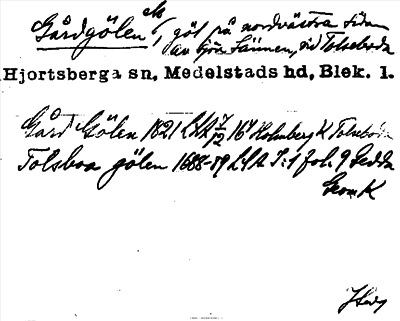 Gårdgölen, göl på nordvästra sidan
av sjön Sännen, vid Tolseboda
Hjortsberga sn, Medelstads hd, Blek. 1.
Gård Gölen 1621 LSA 7/12 16 Holmberg K Tolseboda
Tolsboa gölen 1688-89 LSA I:1 fol. 9 Gedda
Geom K